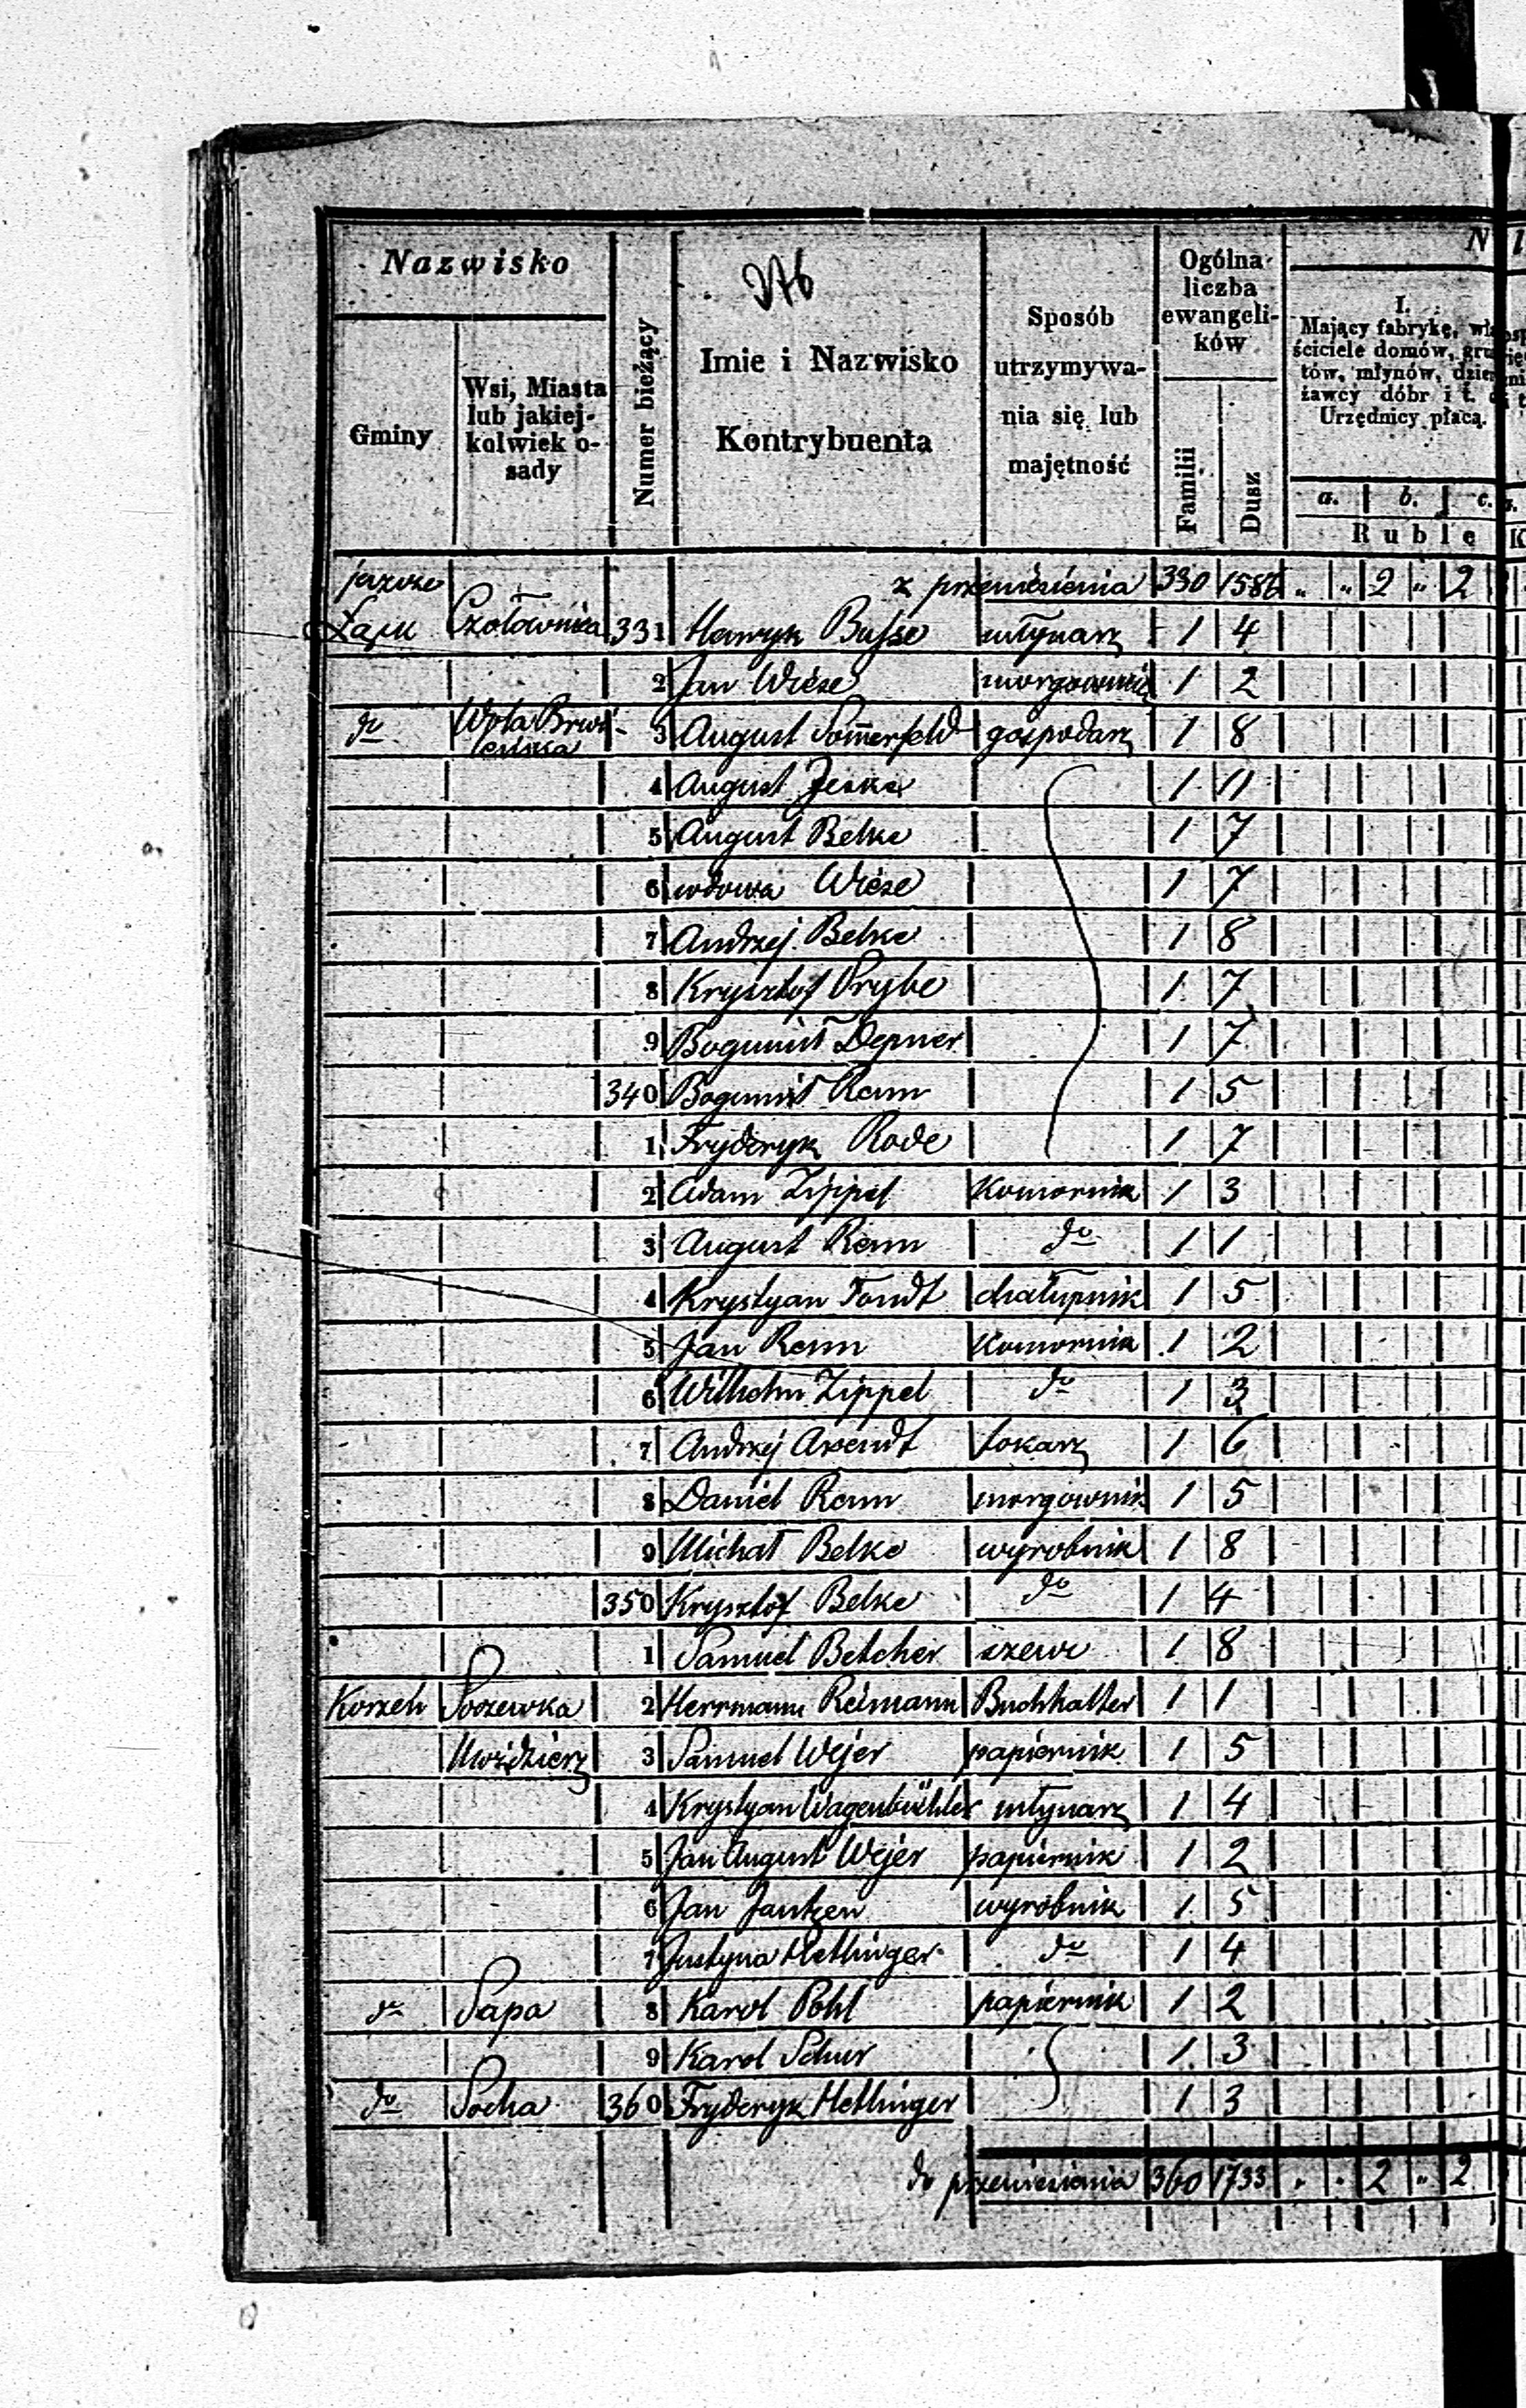 Nazwisko
Gminy
Wsi, Miasta
lub jakiej-
kolwiek o-
sady
Numer bieżący
276
Imie i Nazwisko
Kontrybuenta
Sposób
utrzymywa-
nia się lub
majętność
Ogólna
liczba
ewangeli-
ków
Familii
Dusz
N
I.
Mający fabrykę, wła-
ściciele domów, grun-
tów, młynów, dzier-
żawcy dóbr i t. d.
Urzędnicy płacą.
a. b. c.
Ruble K
jeszcze z przeniesienia 330 1586 „ „ 2 „ 2
Łąck Czołównka 331 Henryk Busse młynarz 1 4
2 Jan Wiese morgownik 1 2
do Wola Brwi- 3 August Sommerfeld gospodarz 1 8
leńska
4 August Jeske 1 11
5 August Belke 1 7
6 wdowa Wiese 1 7
7 Andrzej Belke 1 8
8 Krysztof Prybe 1 7
9 Bogumił Depner 1 7
340 Bogumił Renn 1 5
1 Fryderyk Rode 1 7
2 Adam Zippel Komornik 1 3
3 August Renn do 1 1
4 Krystyan Tondt chałupnik 1 5
5 Jan Renn Komornik 1 2
6 Wilhelm Zippel do 1 3
7 Andrzej Arendt tokarz 1 6
8 Daniel Renn morgownik 1 5
9 Michał Belke wyrobnik 1 8
350 Krysztof Belke do 1 4
1 Samuel Betcher szewc 1 8
Korzeń Soczewka 2 Herrmann Reimann Buchhalter 1 1
Moździerz 3 Samuel Wejer papiernik 1 5
4 Krystyan Wagenbüchler młynarz 1 4
5 Jan August Wejer papiernik 1 2
6 Jan Jantzen wyrobnik 1 5
7 Justyna Hetlinger do 1 4
do Papa 8 Karol Pohl papiernik 1 2
9 Karol Schur 1 3
do Socha 360 Fryderyk Hetlinger 1 3
do przeniesienia 360 1733 „ „ 2 „ 2